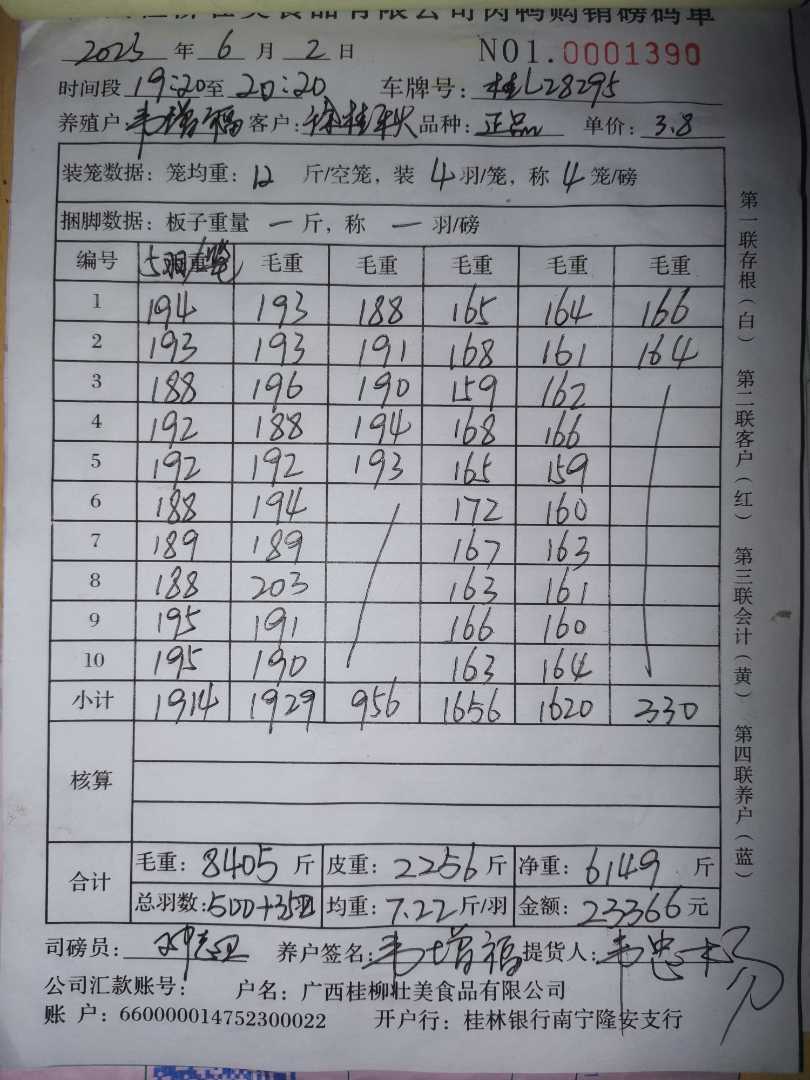 壮美食品有限公司肉鸭购销磅码单
2023 年 6 月 2 日 NO1.0001390
时间段 19:20至 20:20 车牌号: 桂L28295
养殖户: 韦增福 客户: 品种: 正品 单价: 3.8
装笼数据: 笼均重: 12 斤/空笼, 装 4 羽/笼, 称 4 笼/磅
捆脚数据: 板子重量 一 斤, 称 一 羽/磅
编号 5羽/笼 毛重 毛重 毛重 毛重 毛重
1 194 193 188 165 164 166
2 193 193 191 168 161 164
3 188 196 190 159 162
4 192 188 194 168 166
5 192 192 193 165 159
6 188 194 172 160
7 189 189 167 163
8 188 203 163 161
9 195 191 166 160
10 195 190 163 164
小计 1914 1929 956 1656 1620 330
核算
合计 毛重: 8405 斤 皮重: 2256 斤 净重: 6149 斤
总羽数: 500+352 均重: 7.22 斤/羽 金额: 23366 元
司磅员: 养户签名: 韦增福 提货人:
公司汇款账号: 户名: 广西桂柳壮美食品有限公司
账 户: 660000014752300022 开户行: 桂林银行南宁隆安支行
第一联存根(白) 第二联客户(红) 第三联会计(黄) 第四联养户(蓝)